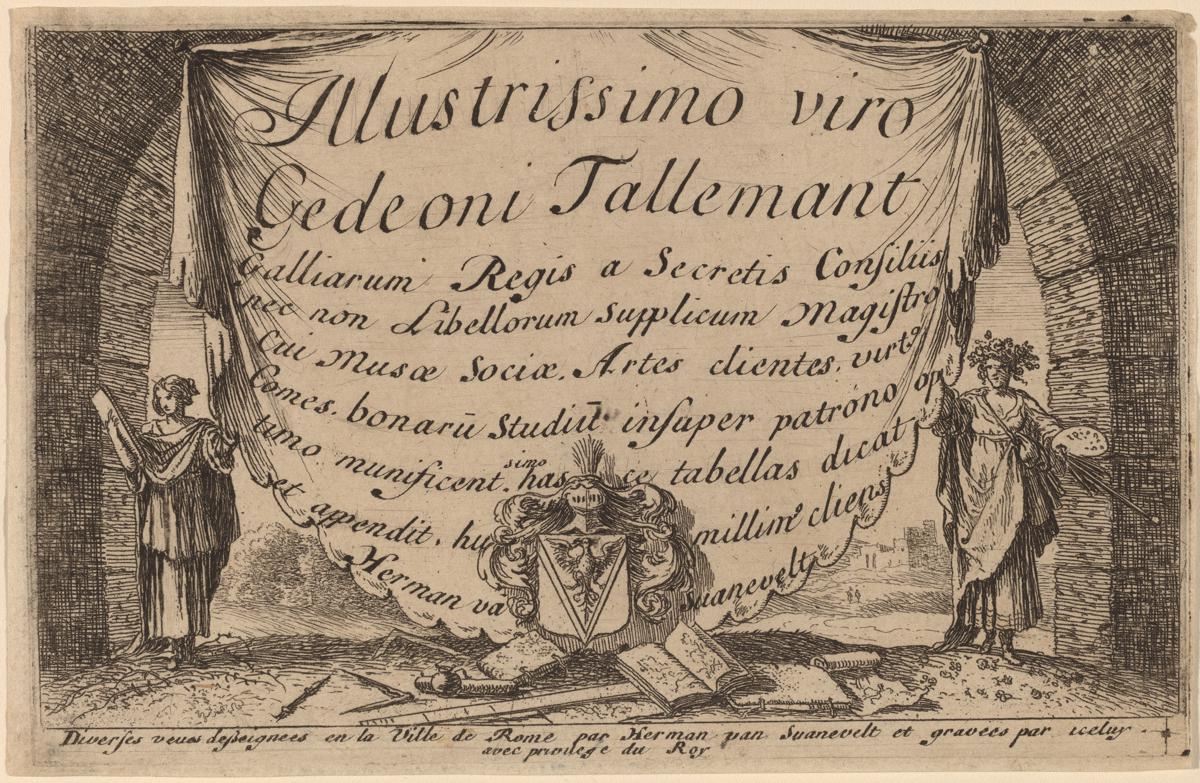 Illustrissimo viro
Gedeoni Tallemant
Galliarum Regis a Secretis Consiliis
nec non Libellorum supplicum Magistro
Cui Musæ Sociæ. Artes clientes. virtꝰ
Comes. bonarū Studiū insuper patrono op
timo munificent.simo has ce tabellas dicat
et appendit. hu millimꝰ cliens
Herman va Suanevelt
Diverses veues desseignees en la Ville de Rome par Herman van Suanevelt et gravées par iceluy
avec privilege du Roy